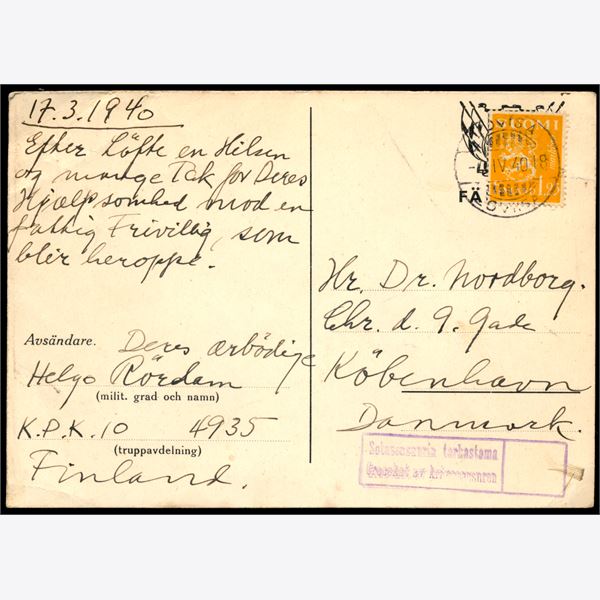 17.3.1940
Efter Löfte en Hilsen
og mange Tak for Deres
Hjælpsomhed mod en
fattig Frivillig, som
blir heroppe.
Avsändare. Deres ærbödige
Helgo Rördam
(milit. grad och namn)
K.P.K. 10 4935
(truppavdelning)
Finland.
SUOMI
LOVISA
-4.IV.40.18
FÄ
Hr. Dr. Nordborg.
Chr. d. 9. Gade
Köbenhavn
Danmark.
Sotasensuurin tarkastama
Granskat av krigscensuren